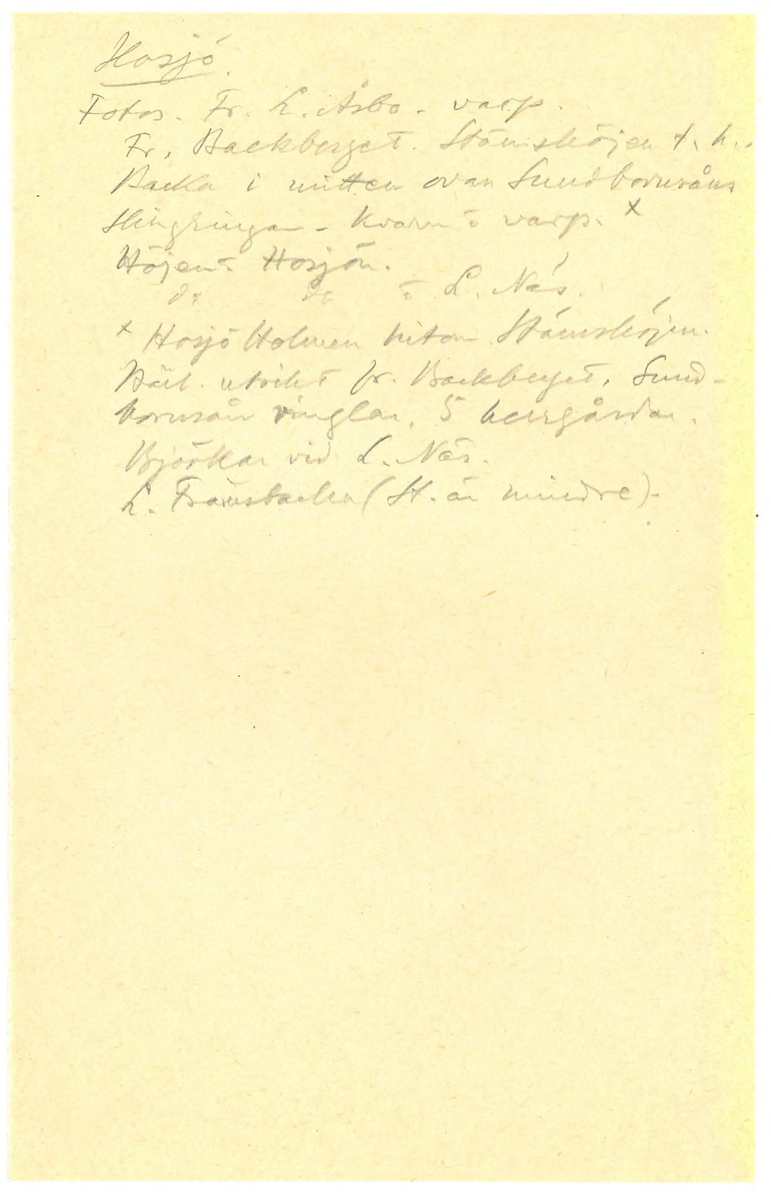 Hosjö.
Fotos. Fr. L. Åsbo. varp.
Fr. Backberget. Stämshöjen t. h.
Backa i mitten ovan Sundbornsåns
slingringar - Kvarn o varp. x
Höjen o Hosjön.
do do o L. Näs.
x Hosjö Holmen hitom Stämshöjen.
Härl. utsikt fr. Backberget, Sund-
bornsån ringlar, 5 herrgårdar.
Björkar vid L. Näs.
L. (St. är mindre).